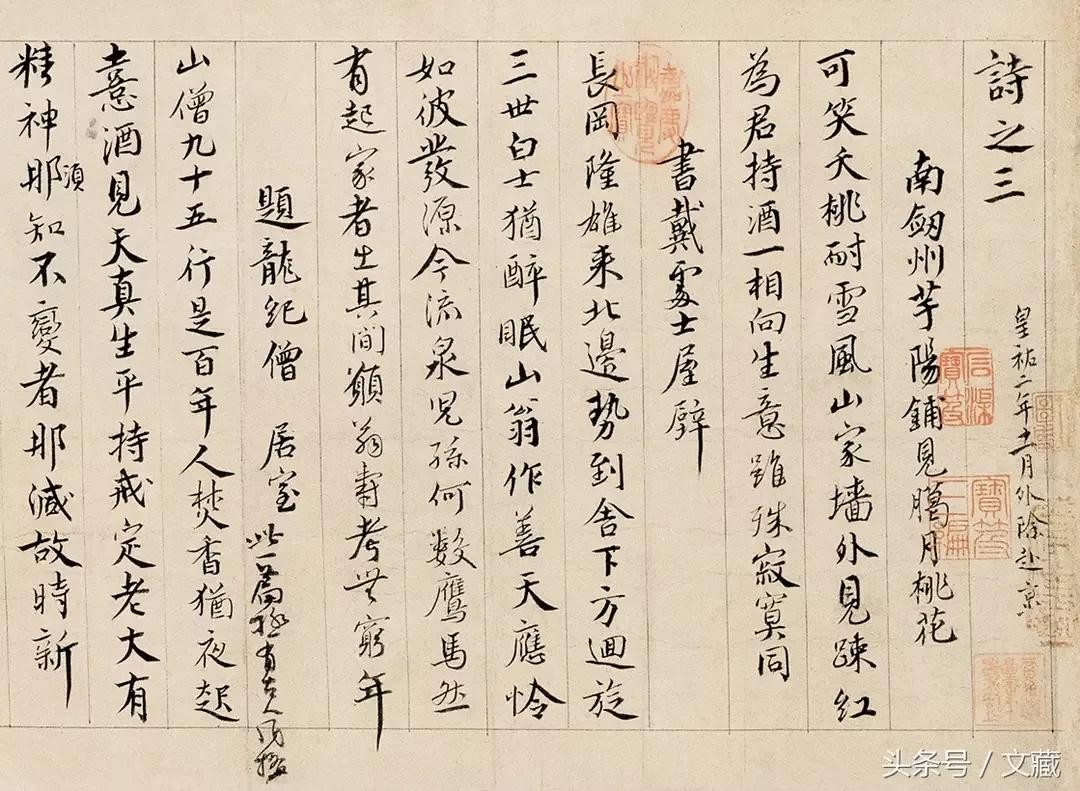 詩之三
皇祐二年十一月外除赴京
南劔州芋陽鋪見臘月桃花
可笑夭桃耐雪風山家墻外見疎紅
為君持酒一相向生意雖殊寂寞同
書戴處士屋壁
長岡隆雄來北邊勢到舍下方迴旋
三世白士猶醉眠山翁作善天應憐
如彼發源今流泉兒孫何數鷹馬然
有起家者出其間願翁壽考無窮年
題龍紀僧居室 此一篇極有古人風格
山僧九十五行是百年人焚香猶夜起
憙酒見天真生平持戒定老大有
精神那須知不變者那減故時新
嘉慶御覽之寶
寶笈三編
头条号 / 文藏